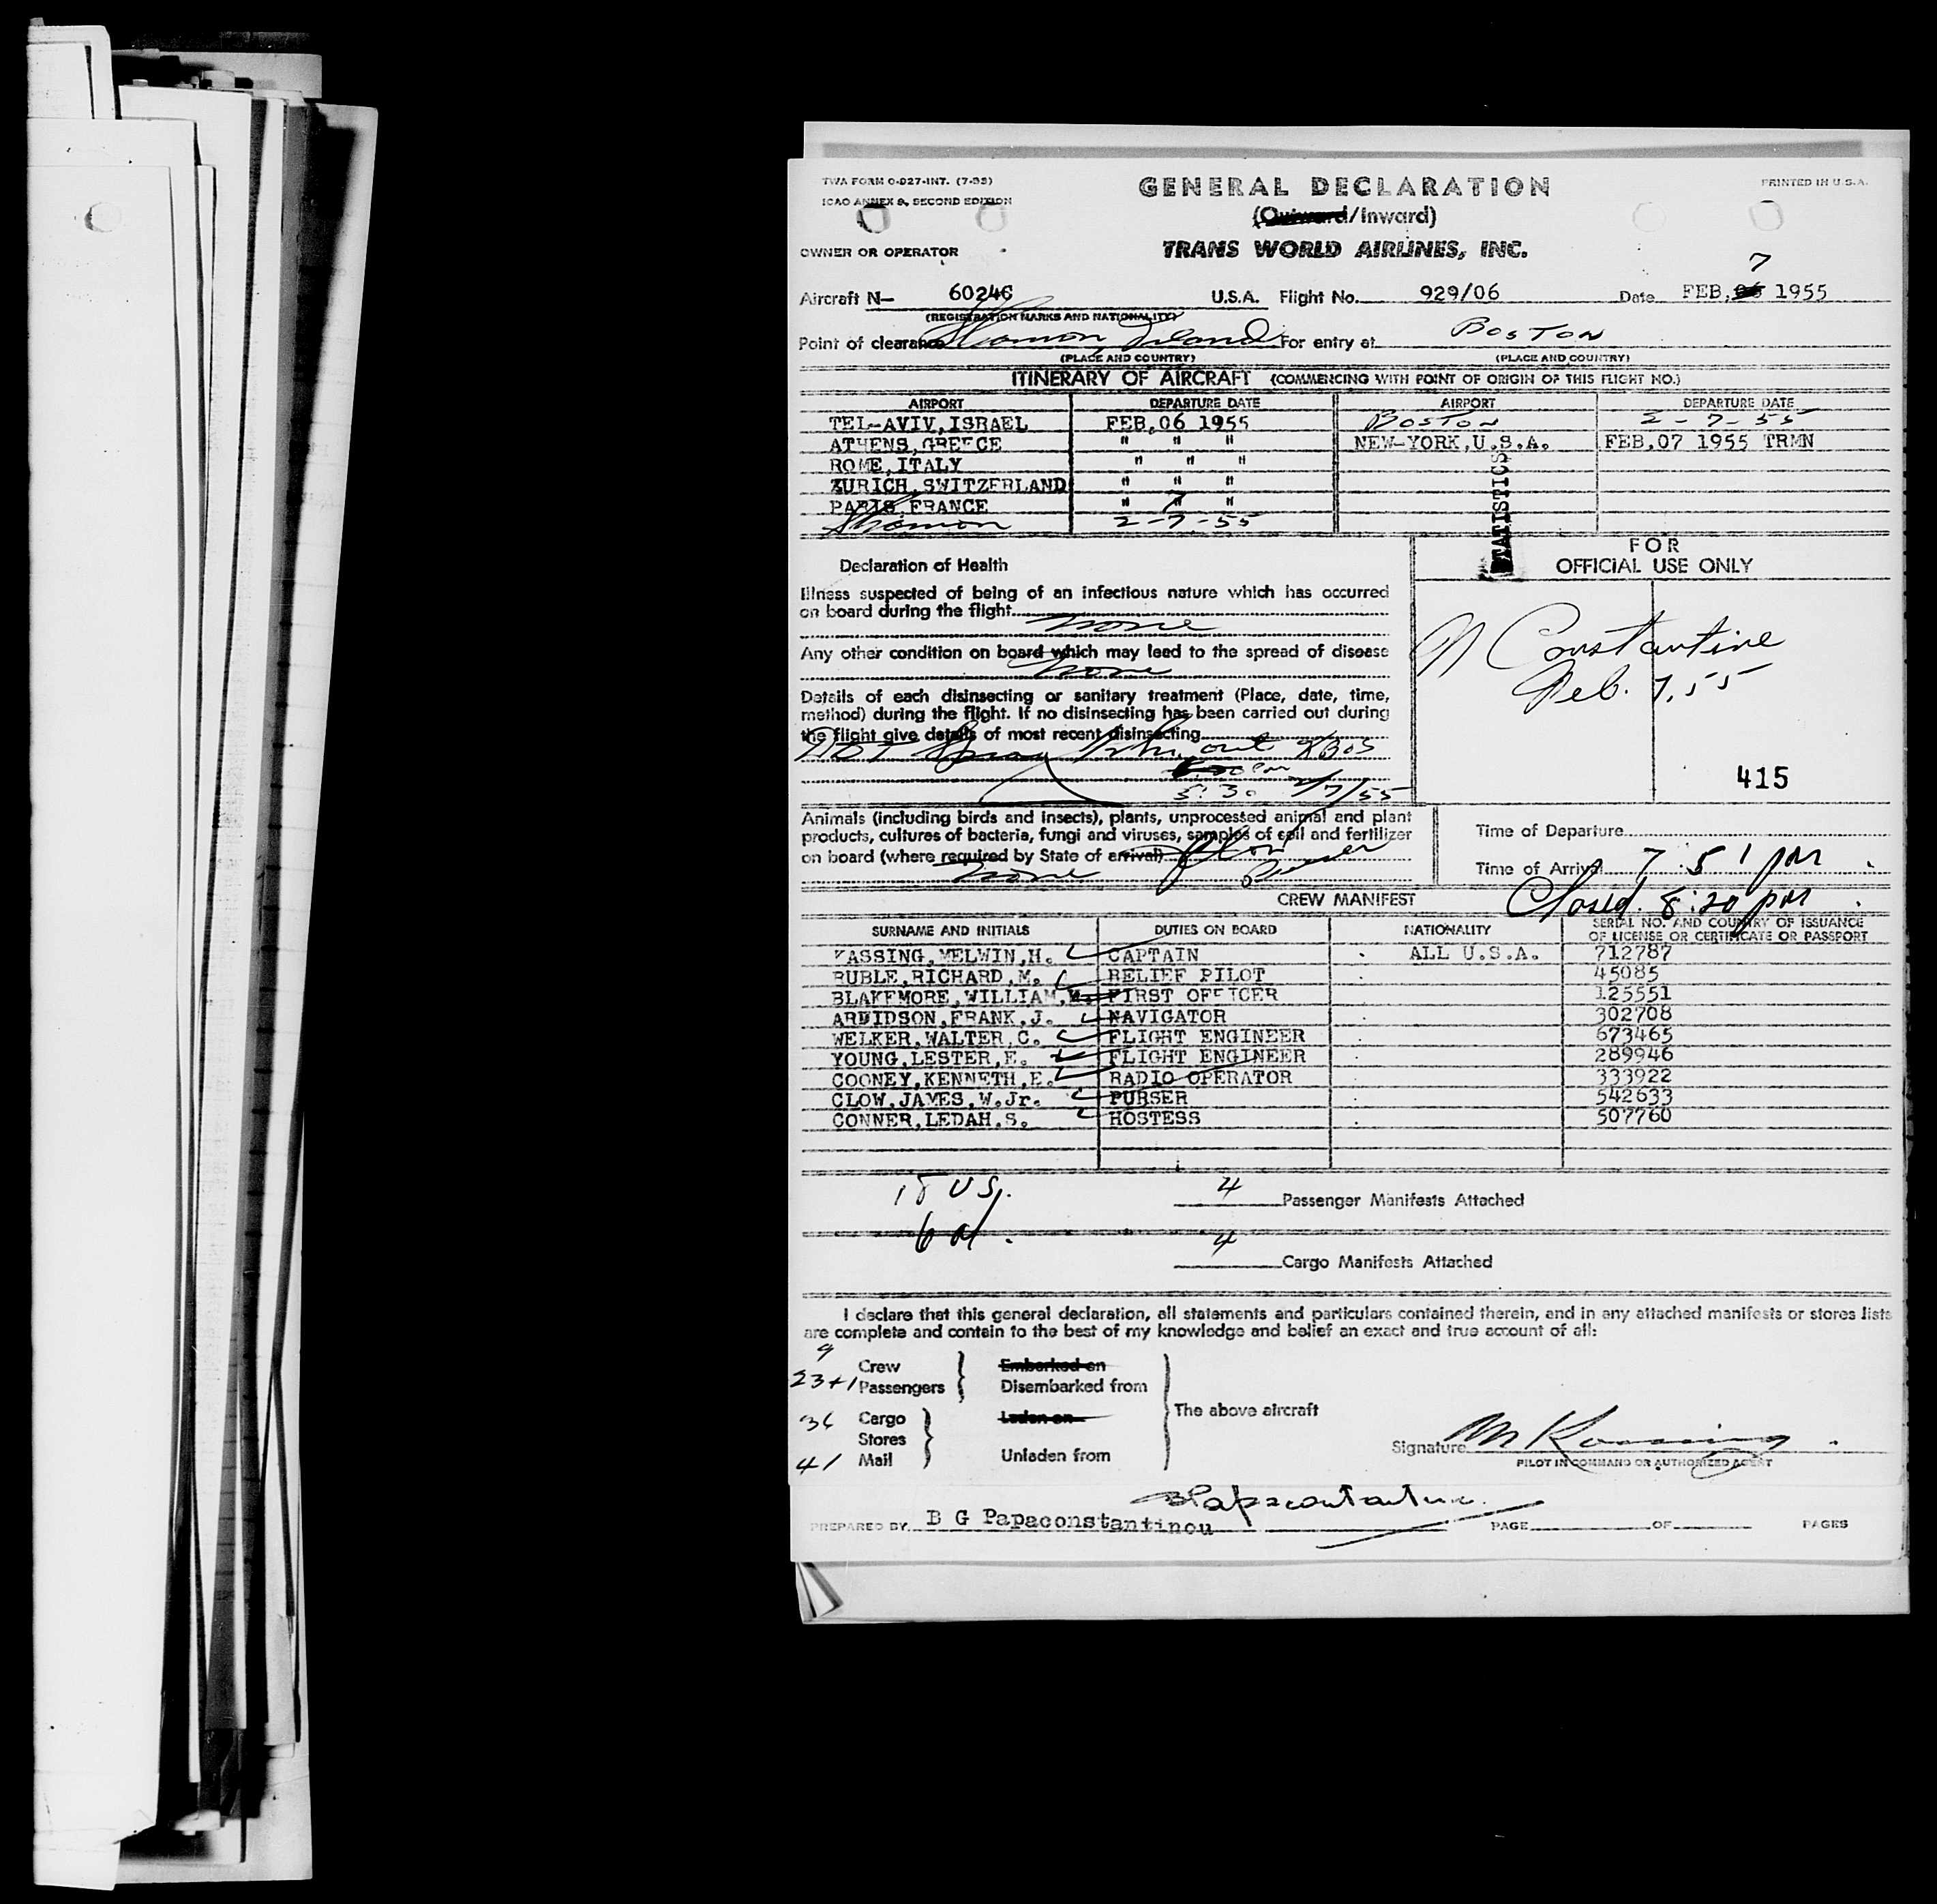 TWA FORM O-027-INT. (7-53)
ICAO ANNEX 9, SECOND EDITION
GENERAL DECLARATION
PRINTED IN U.S.A.
(Outward/Inward)
OWNER OR OPERATOR
TRANS WORLD AIRLINES, INC.
7
Aircraft N— 60246 U.S.A. Flight No. 929/06 Date FEB. 06 1955
(REGISTRATION MARKS AND NATIONALITY)
Point of clearance Shannon Ireland For entry at BOSTON
(PLACE AND COUNTRY) (PLACE AND COUNTRY)
ITINERARY OF AIRCRAFT (COMMENCING WITH POINT OF ORIGIN OF THIS FLIGHT NO.)
AIRPORT DEPARTURE DATE AIRPORT DEPARTURE DATE
TEL-AVIV,ISRAEL FEB,06 1955 BOSTON 2-7-55
ATHENS,GREECE " " " NEW-YORK,U.S.A. FEB,07 1955 TRMN
ROME,ITALY " " "
ZURICH,SWITZERLAND " " "
PARIS,FRANCE " 7 "
Shannon 2-7-55
STATISTICS
Declaration of Health
FOR
OFFICIAL USE ONLY
Illness suspected of being of an infectious nature which has occurred
on board during the flight
none
Any other condition on board which may lead to the spread of disease
none
N Constantine
Feb. 7, 55
Details of each disinsecting or sanitary treatment (Place, date, time,
method) during the flight. If no disinsecting has been carried out during
the flight give details of most recent disinsecting
DDT Spray 1 hr. out XBOS
5:30 2/7/55
415
Animals (including birds and insects), plants, unprocessed animal and plant
products, cultures of bacteria, fungi and viruses, samples of soil and fertilizer
on board (where required by State of arrival)
none
Time of Departure
Time of Arrival 7:51 pm
Closed. 8:20 pm
CREW MANIFEST
SURNAME AND INITIALS DUTIES ON BOARD NATIONALITY SERIAL NO. AND COUNTRY OF ISSUANCE
OF LICENSE OR CERTIFICATE OR PASSPORT
KASSING,MELWIN,H. CAPTAIN ALL U.S.A. 712787
RUBLE,RICHARD,M. RELIEF PILOT 45085
BLAKEMORE,WILLIAM, FIRST OFFICER 125551
ARWIDSON,FRANK,J. NAVIGATOR 302708
WELKER,WALTER,C. FLIGHT ENGINEER 673465
YOUNG,LESTER,E. FLIGHT ENGINEER 289946
COONEY,KENNETH,E. RADIO OPERATOR 333922
CLOW,JAMES,W.Jr. PURSER 542633
CONNER,LEDAH,S. HOSTESS 507760
18 US.
4 Passenger Manifests Attached
6 al.
4 Cargo Manifests Attached
I declare that this general declaration, all statements and particulars contained therein, and in any attached manifests or stores lists
are complete and contain to the best of my knowledge and belief an exact and true account of all:
9 Crew Embarked on
23+1 Passengers Disembarked from
The above aircraft
36 Cargo Laden on
Stores
41 Mail Unladen from
Signature M Kassing
PILOT IN COMMAND OR AUTHORIZED AGENT
PREPARED BY B G Papaconstantinou PAGE OF PAGES